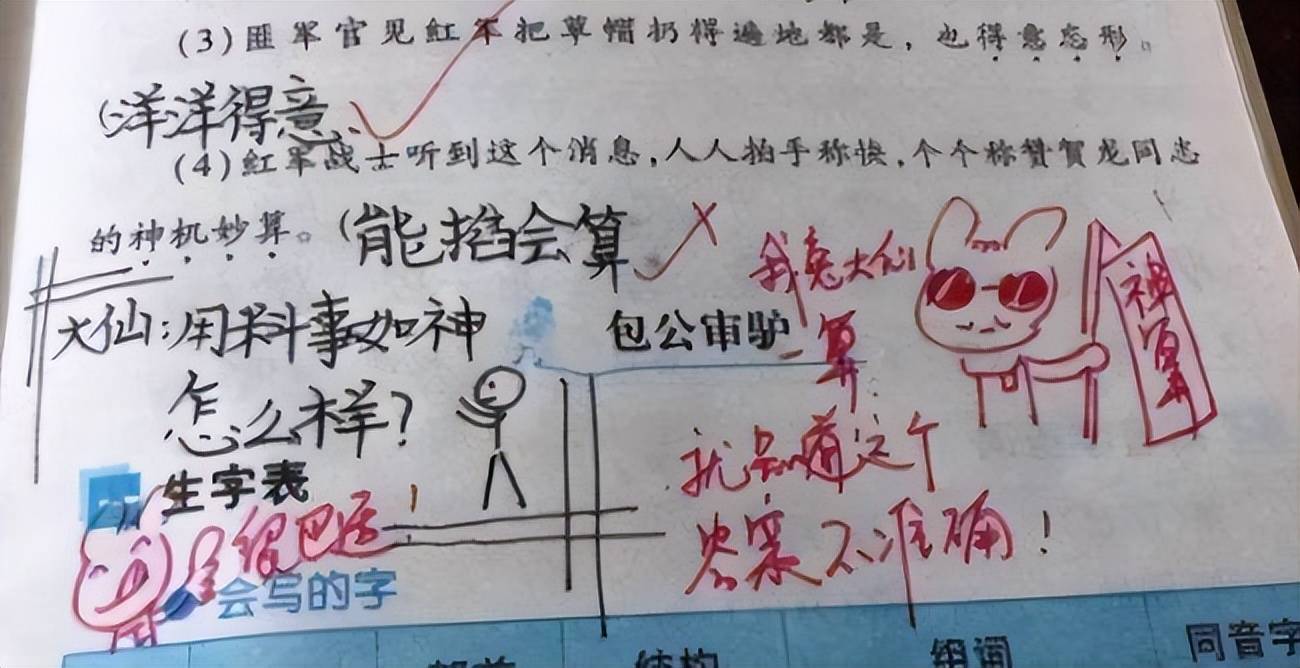 (3)匪军官见红军把草帽扔得遍地都是，也得意忘形。
(洋洋得意
(4)红军战士听到这个消息，人人拍手称快，个个称赞贺龙同志
的神机妙算。(能掐会算
我兔大仙
一算：
神算
大仙：用料事如神
怎么样？
包公审驴
就知道这个
答案不准确！
生字表
很巴适
会写的字
结构
组词
同音字